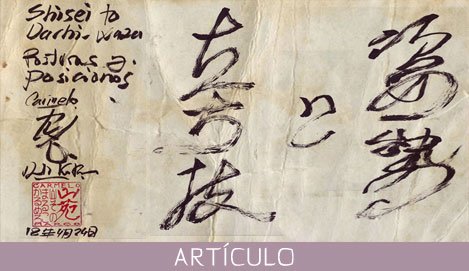 Shisei to
Dachi-Waza
Posturas y
posiciones
Carmelo
CARMELO
18年4月24日
姿勢
と
立ち技
ARTÍCULO